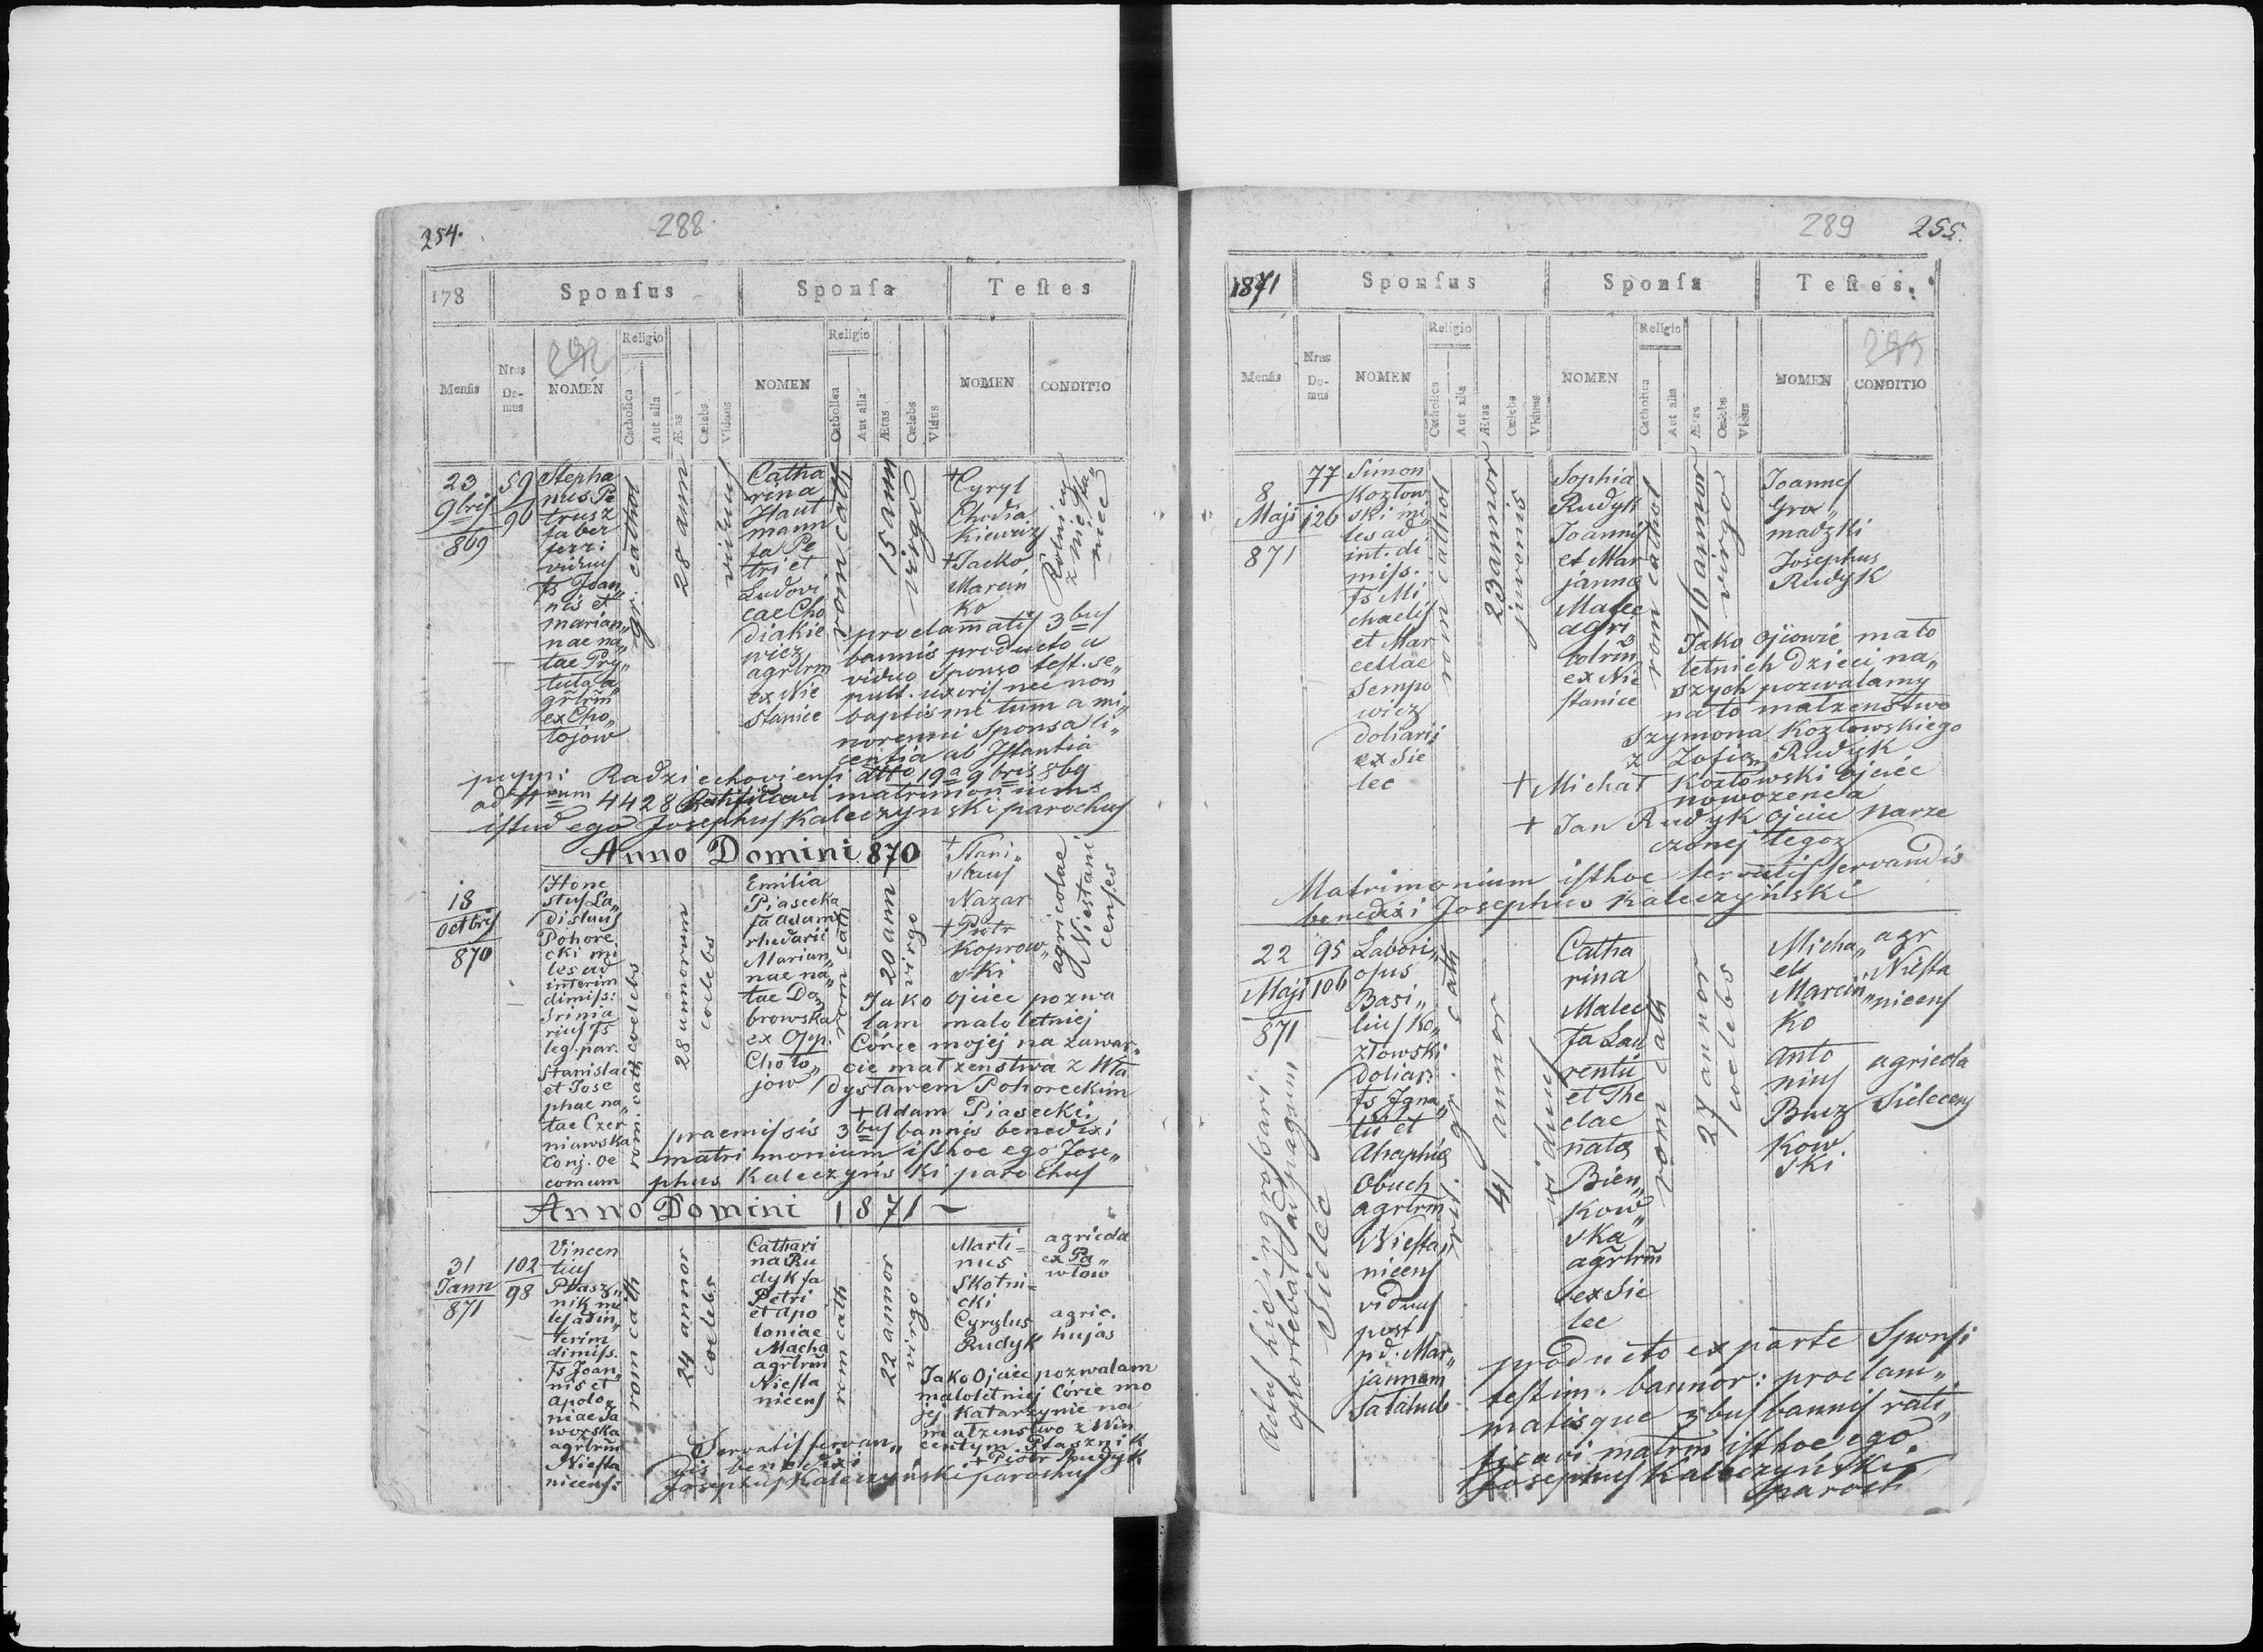 254.
288
178
Sponsus
Sponsa
Testes
Mensis
Nrus Domus
NOMEN
Religio
Catholica
Aut alia
Ætas
Cœlebs
Viduus
NOMEN
Religio
Catholica
Aut alia
Ætas
Cœlebs
Vidus
NOMEN
CONDITIO
23
9bris
869
59
90
Stepha
nus Pe
trusz
faber
ferri
viduus
fs Joan„
nis et
marian„
nae na„
tae Pry„
tula a„
grlrm
ex Cho„
lojow
gr. cathol
28 ann
viduus
Catha
rina
Haut
mann
fa Pe
tri et
Ludovi
cae Cho
diakie
wicz
agrlrm
ex Nie
stanice
rom cath
15 ann
virgo
+Cyryl
Chodia
kiewicz
+Jacko
Marcin
ko
Rolnicy
z Niesta„
nice
proclamatis 3bus
bannis producto a
viduo Sponso test. se„
pult. uxoris nec non
baptismi tum a mi„
norenni Sponsa li„
centia ab Istantia
pupp: Radziechoviensi dtto 19a 9bris 869
ad Nrum 4428 Ratificavi matrimonium
istud ego Josephus Kaleczynski parochus
Anno Domini 870
18
octbris
870
Hone
stus La„
dislaus
Pohore
cki mi
les ad
interim
dimiss:
leg. par.
Stanislai
et Jose
phae na„
tae Czer
niawska
Conj. oe
comum
rom. cath coelebs
28 annorum
coelebs
Emilia
Piasecka
fa adami
rhedarii
Marian„
nae na„
tae Dą
browska
ex Opp.
Choło„
jow
rom cath
20 ann
virgo
+Stani„
slaus
Nazar
+Piotr
Koprow„
ski
agricolae
Niestani
censes
Jako ojciec pozwa
lam maloletniej
Córce mojej na zawar„
cie małzenstwa z Wła
dysławem Pohoreckim
+Adam Piasecki.
praemissis 3bus bannis benedixi
matrimonium isthoc ego Jose„
phus Kaleczyński parochus
Anno Domini 1871 —
31
Jann
871
102
98
Vincen
tius
Ptasz„
nik mi
les ad in„
terim
dimiss.
fs Joan„
nis et
apolo„
niae Ja
worska
agrlrm
Niesta
nicens:
rom cath
24 annor
coelebs
Cathari
na Ru
dyk fa
Petri
et apo
loniae
Macha
agrlrm
Niesta
nicens
rom cath
22 annor
virgo
Marti=
nus
Skotni=
cki
Cyryllus
Rudyk
agricola
ex Pa„
włow
agric.
hujas
Jako Ojciec pozwalam
maloletniej Córce mo
jej Katarzynie na
małzenstwo z Win
centym Ptasznik
+Piotr Rudyk
Servatis servan„
dis benedixi
Josephus Kaleczyński parochus
289
255.
1871
Sponsus
Sponsa
Testes.
Mensis
Nrus Domus
NOMEN
Religio
Catholica
Aut alia
Ætas
Cœlebs
Viduus
NOMEN
Religio
Catholica
Aut alia
Ætas
Cœlebs
Vidus
NOMEN
CONDITIO
8
Maji
871
77
126
Simon
Kozłow
ski mi„
les ad
int. di
miss.
fs Mi
chaelis
et Mar
cellae
Sempo
wicz
doliarii
ex Sie
lec
rom cathol
23 annor
juvenis
Sophia
Rudyk
Joannis
et Mar
janna
Malec
agri
colrm
ex Nie
stanice
rom cathol
16 annor
virgo
Joannes
Gro„
madzki
Josephus
Rudyk
Jako ojcowie mało
letnich dzieci na„
szych pozwalamy
na to małzenstwo
Szymona Kozłowskiego
z Zofią Rudyk
+Michał Kozłowski ojciec
nowozenca
+ Jan Rudyk ojciec narze
czonej tegoz
Matrimonium isthoc servatis servandis
benedixi Josephus Kaleczyński
22
Maji
871
95
106
Labori„
osus
Basi„
lius Ko„
złowski
doliar:
fs Igna„
tii et
Ahaphia
Obuch
agrlrm
Niesta„
nicens
viduus
post
pd. Mar„
jannam
Sałahub
rit. gr. cath
41 annor
viduus
Catha
rina
Malec
fa Lau
rentii
et The
clae
nata
Bien„
kow„
ska
agrlrm
ex Sie
lec
rom cath
27 annor
coelebs
Micha„
el
Marcin„
ko
anto
nius
Bucz
kow
ski
agr
Niesta
nicens
agricola
Sielecens
Actus hic ingrossari
oportebat ad pagum
Sielec
producto ex parte Sponsi
testim. bannor: proclam„
matisque 3bus bannis rati„
ficavi matrm isthoc ego
Josephus Kaleczyński
paroch